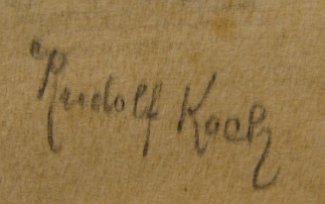 Rudolf Koch